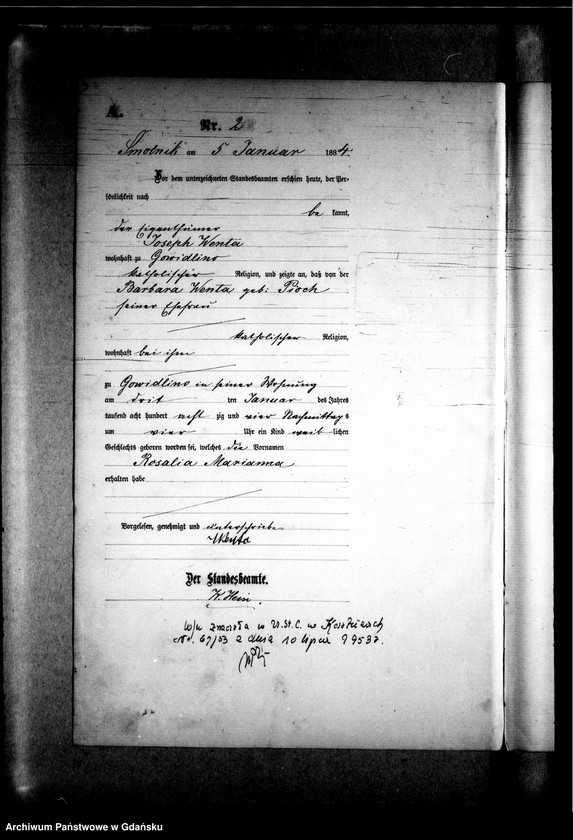 A.
Nr. 2
Smolnik am 5 Januar 1884
Vor dem unterzeichneten Standesbeamten erschien heute, der Per-
sönlichkeit nach
be kannt,
der Eigenthümer
Joseph Wenta
wohnhaft zu Gowidlino
katholischer Religion, und zeigte an, daß von der
Barbara Wenta geb: Pioch
seiner Ehefrau
katholischer Religion,
wohnhaft bei ihm
zu Gowidlino in seiner Wohnung
am drit ten Januar des Jahres
tausend acht hundert acht zig und vier Nachmittags
um vier Uhr ein Kind weib lichen
Geschlechts geboren worden sei, welches die Vornamen
Rosalia Marianna
erhalten habe
Vorgelesen, genehmigt und unterschrieben
Wenta
Der Standesbeamte.
W/w zmarła w U.St.C. w
Nr. 67/53 z dnia 10 lipca 1953r.
Archiwum Państwowe w Gdańsku